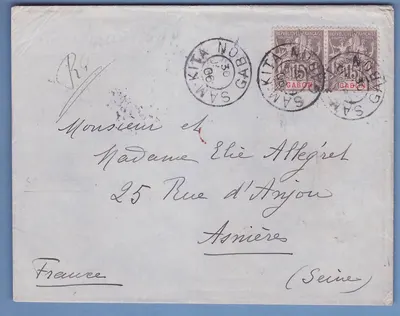 SAMKITA GABON
SAMKITA GABON
SAMKITA GABON
15
GABON
Monsieur et
Madame Elie Allégret
25 Rue d'Anjou
Asnières
(Seine)
France